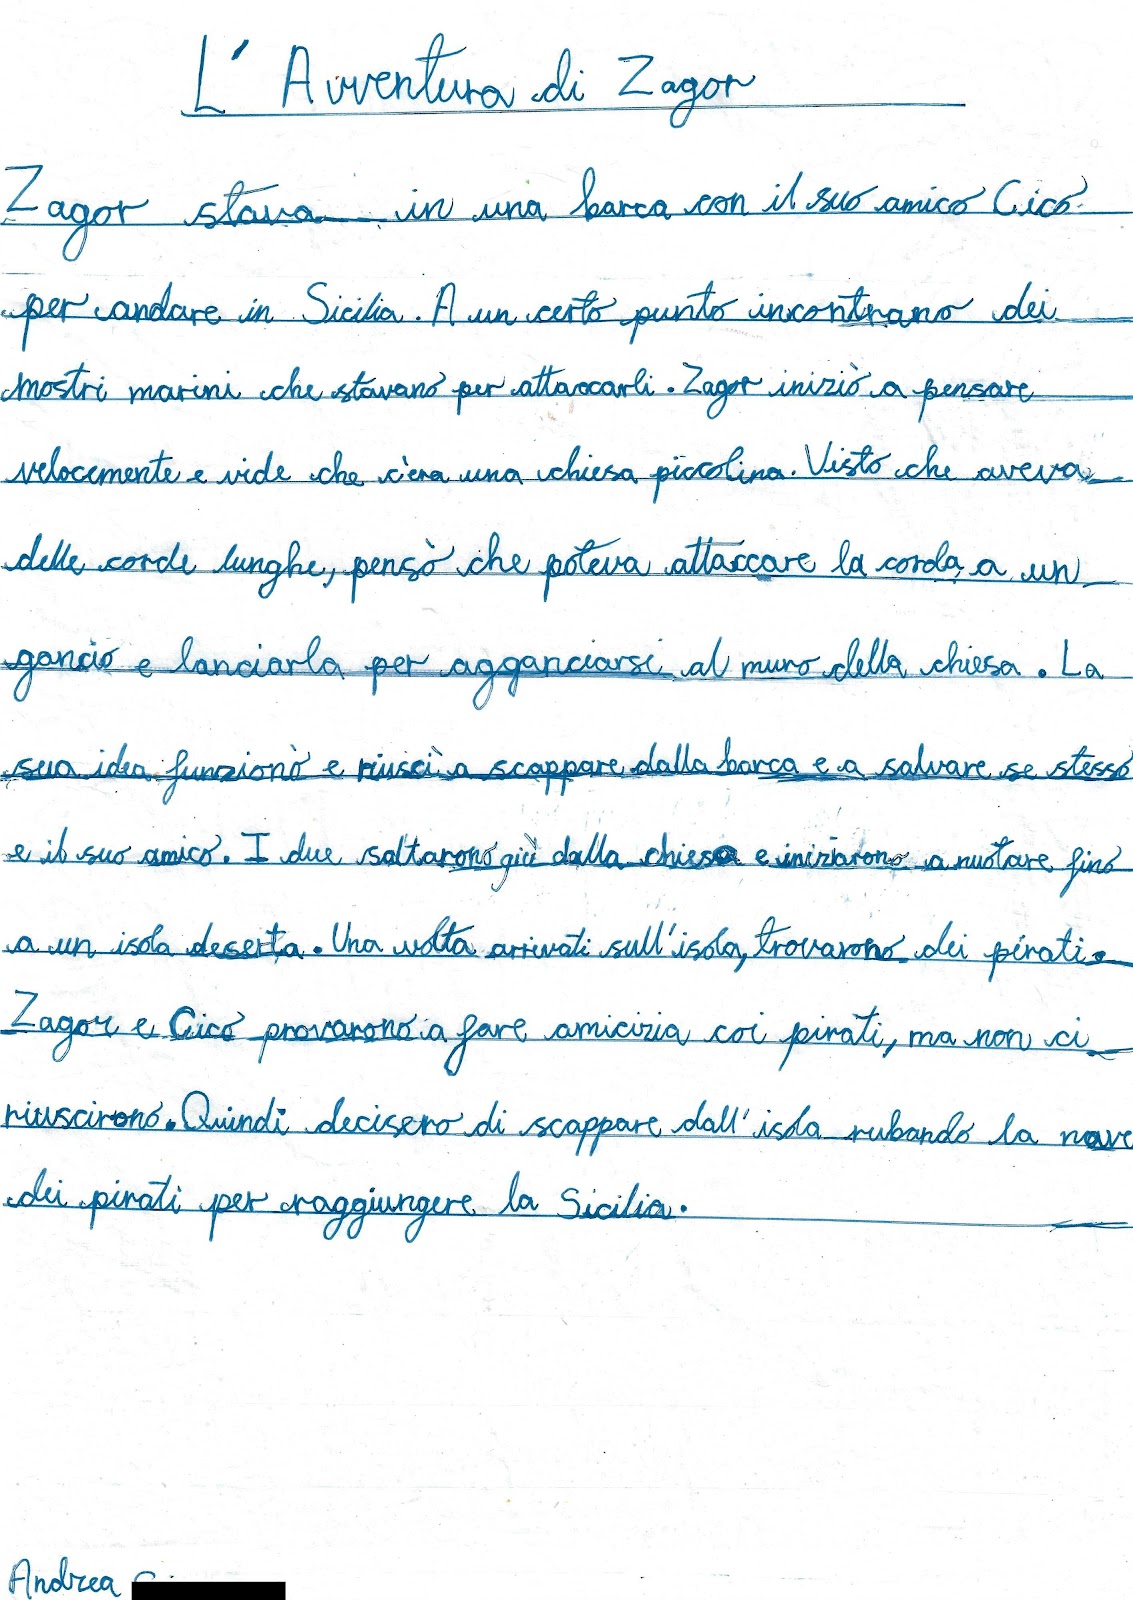 L'Avventura di Zagor
Zagor stava in una barca con il suo amico Cico
per andare in Sicilia. A un certo punto incontrano dei
mostri marini che stavano per attaccarli. Zagor iniziò a pensare
velocemente e vide che c'era una chiesa piccolina. Visto che aveva
delle corde lunghe, pensò che poteva attaccare la corda a un
gancio e lanciarla per agganciarsi al muro della chiesa. La
sua idea funzionò e riuscì a scappare dalla barca e a salvare se stesso
e il suo amico. I due saltarono giù dalla chiesa e iniziarono a nuotare fino
a un isola deserta. Una volta arrivati sull'isola, trovarono dei pirati.
Zagor e Cico provarono a fare amicizia coi pirati, ma non ci
riuscirono. Quindi decisero di scappare dall'isola rubando la nave
dei pirati per raggiungere la Sicilia.
Andrea